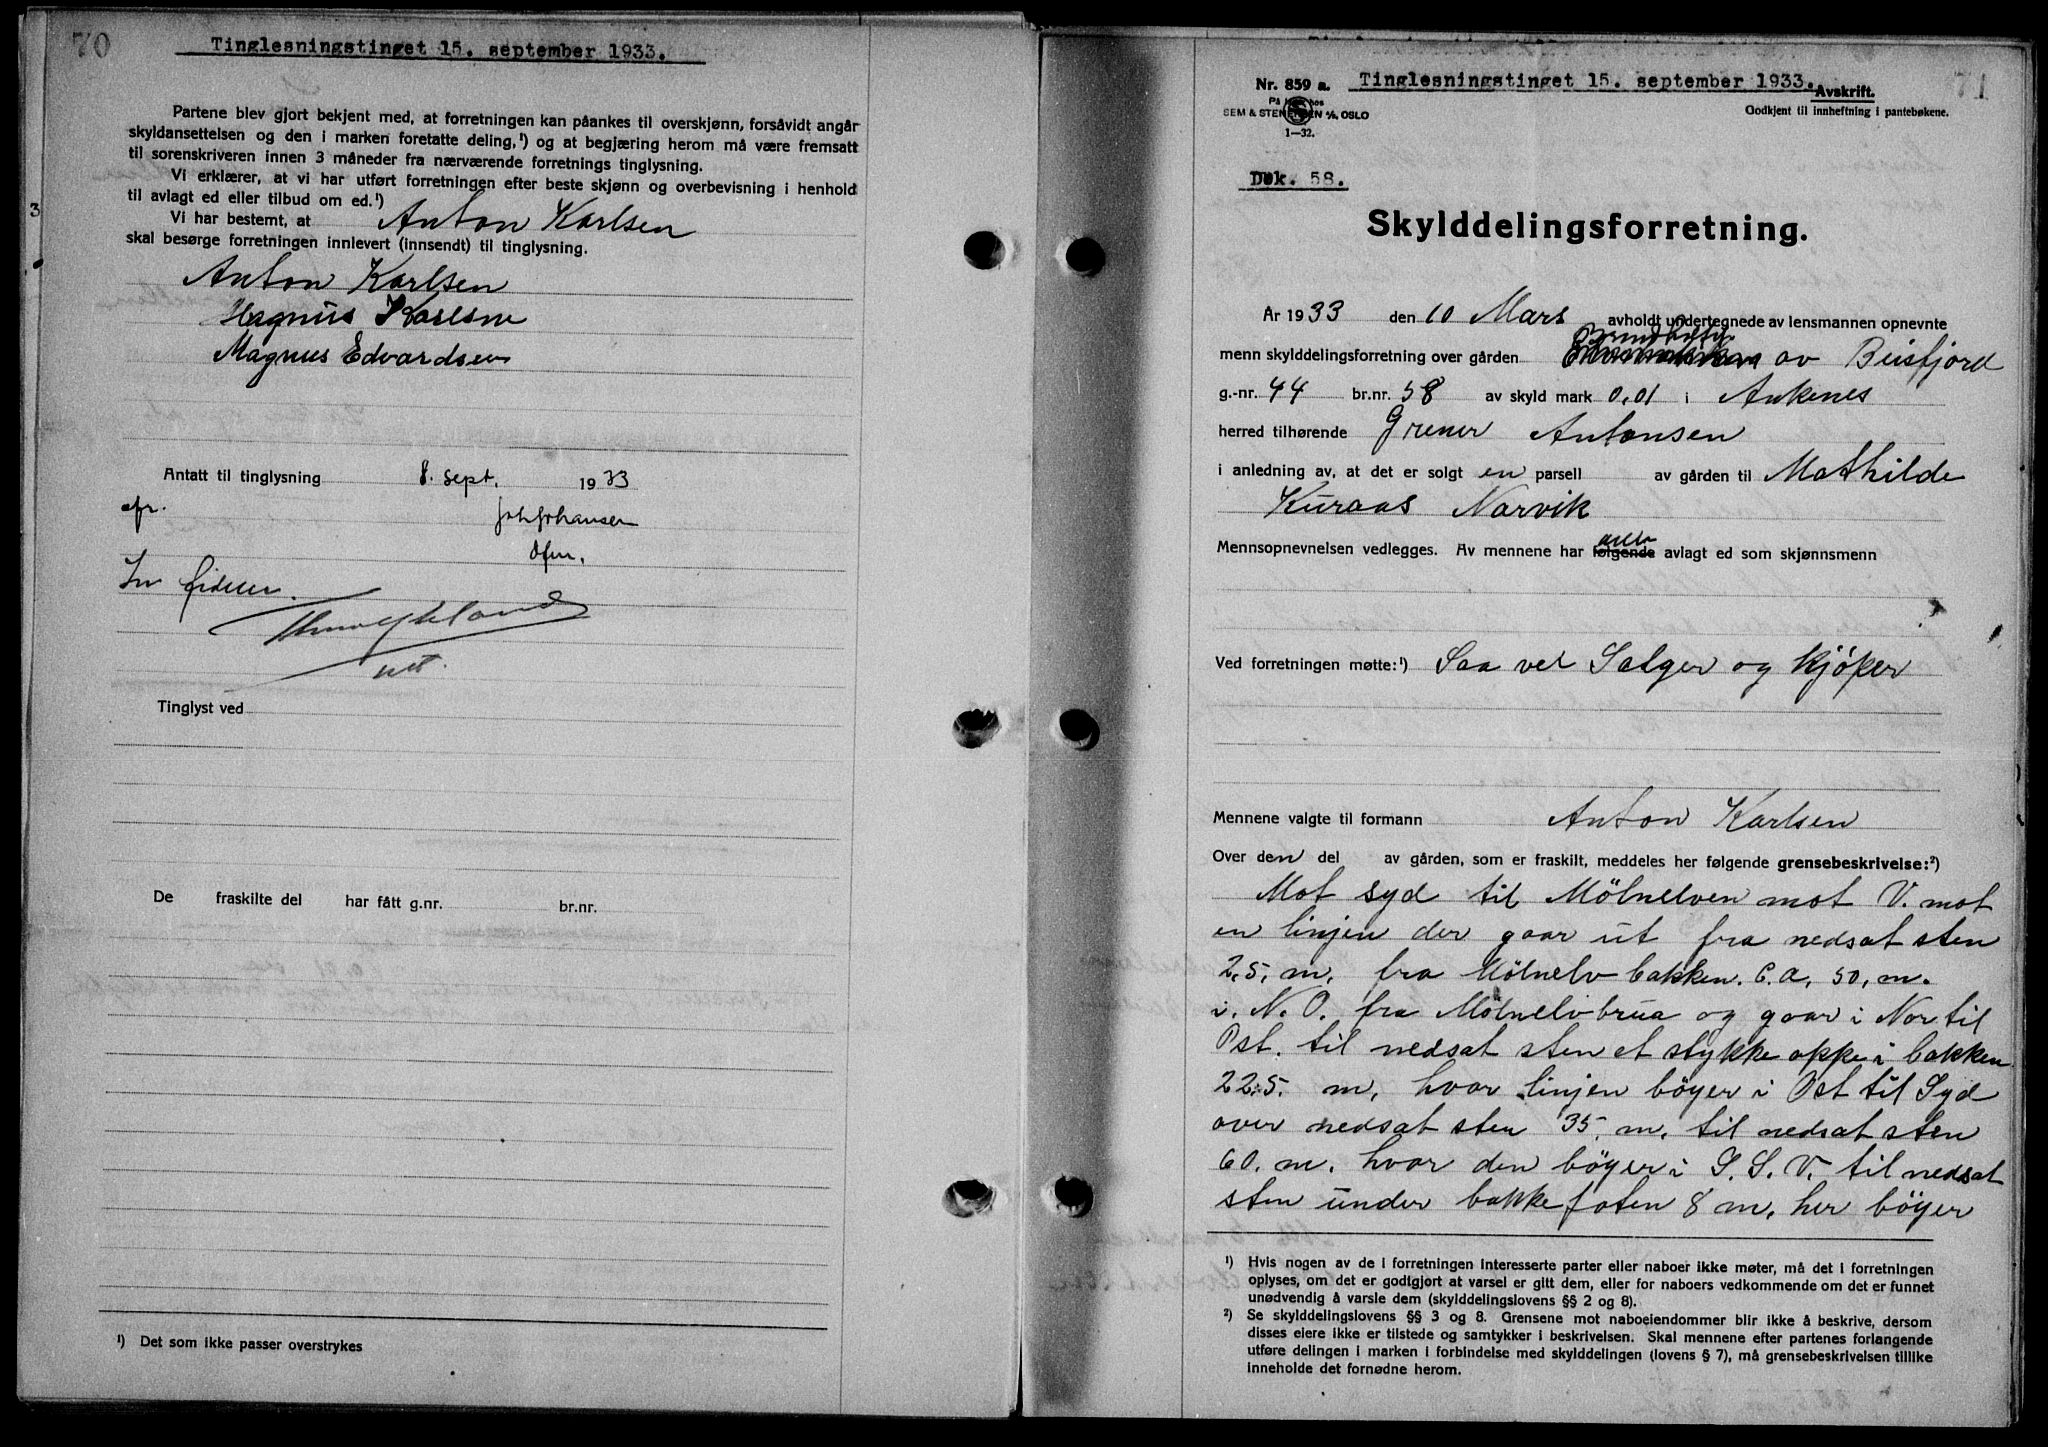 70
Tinglesningstinget 15. september 1933.
Partene blev gjort bekjent med, at forretningen kan påankes til overskjønn, forsåvidt angår
skyldansettelsen og den i marken foretatte deling,¹) og at begjæring herom må være fremsatt
til sorenskriveren innen 3 måneder fra nærværende forretnings tinglysning.
Vi erklærer, at vi har utført forretningen efter beste skjønn og overbevisning i henhold
til avlagt ed eller tilbud om ed.¹)
Vi har bestemt, at Anton Karlsen
skal besørge forretningen innlevert (innsendt) til tinglysning.
Anton Karlsen
Magnus Karlsen
Magnus Edvardsen
Antatt til tinglysning 8. sept. 1933
efr.
Joh Johansen
Ofm.
In fidem
Tinglyst ved
De fraskilte del har fått g.nr. br.nr.
¹) Det som ikke passer overstrykes
Nr. 859 a. Tinglesningstinget 15. september 1933. Avskrift. 71
På lager hos
SEM & STENERSEN A/S, OSLO
1—32.
Godkjent til innheftning i pantebøkene.
Dok. 58.
Skylddelingsforretning.
År 1933 den 10 Mars avholdt undertegnede av lensmannen opnevnte
menn skylddelingsforretning over gården av Beisfjord
g.-nr. 44 br.nr. 58 av skyld mark 0,01 i Ankenes
herred tilhørende Grener Antonsen
i anledning av, at det er solgt en parsell av gården til Mathilde
Kuraas Narvik
Mennsopnevnelsen vedlegges. Av mennene har følgende alle avlagt ed som skjønnsmenn
Ved forretningen møtte:¹) Saa vel Sælger og Kjøper
Mennene valgte til formann Anton Karlsen
Over den del av gården, som er fraskilt, meddeles her følgende grensebeskrivelse:²)
Mot syd til Mölnelven mot V. mot
en linjen der gaar ut fra nedsat sten
2,5, m. fra Mölnelv bakken. C.a. 50, m.
i. N. O. fra Mölnelvbrua og gaar i Nor til
Øst. til nedsat sten et stykke oppe i bakken
22.5. m, hvor linjen böyer i Øst til Syd
over nedsat sten 35, m, til nedsat sten
60. m. hvor den böyer i S. S. V. til nedsat
sten under bakkefoten 8 m, her böyer
¹) Hvis nogen av de i forretningen interesserte parter eller naboer ikke møter, må det i forretningen
oplyses, om det er godtgjort at varsel er gitt dem, eller for naboers vedkommende om det er funnet
unødvendig å varsle dem (skylddelingslovens §§ 2 og 8).
²) Se skylddelingslovens §§ 3 og 8. Grensene mot naboeiendommer blir ikke å beskrive, dersom
disses eiere ikke er tilstede og samtykker i beskrivelsen. Skal mennene efter partenes forlangende
utføre delingen i marken i forbindelse med skylddelingen (lovens § 7), må grensebeskrivelsen tillike
inneholde det fornødne herom.